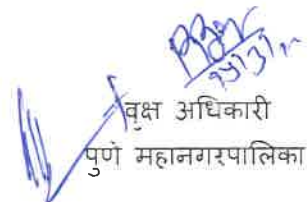 वृक्ष अधिकारी
पुणे महानगरपालिका